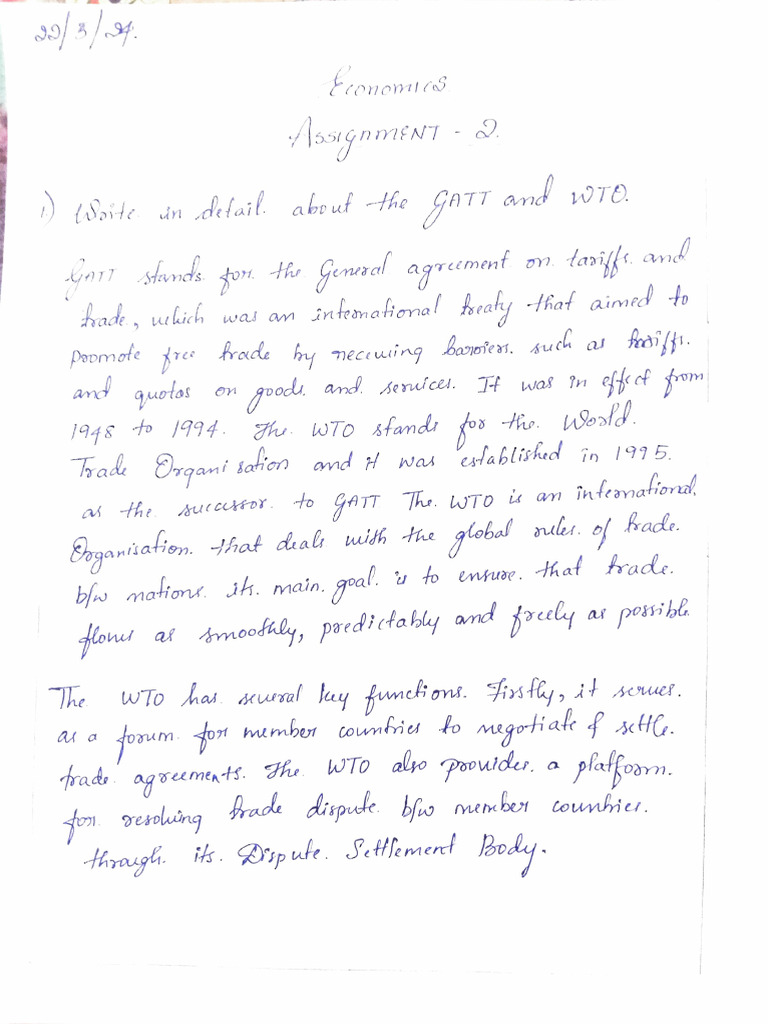 22/3/24.
Economics
Assignment - 2.
1) Write in detail about the GATT and WTO.
GATT stands for the General agreement on tariffs and
trade, which was an international treaty that aimed to
promote free trade by barriers such as tariffs.
and quotas on goods and services. It was in effect from
1948 to 1994. The WTO stands for the World
Trade Organisation and it was established in 1995.
as the successor to GATT The WTO is an international
Organisation that deals with the global rules of trade
b/w nations. its main goal is to ensure that trade
flows as smoothly, predictably and freely as possible
The WTO has several key functions. Firstly, it serves
as a forum for member countries to negotiate & settle
trade agreements. The WTO also provides a platform
for resolving trade dispute b/w member countries
through its Dispute Settlement Body.